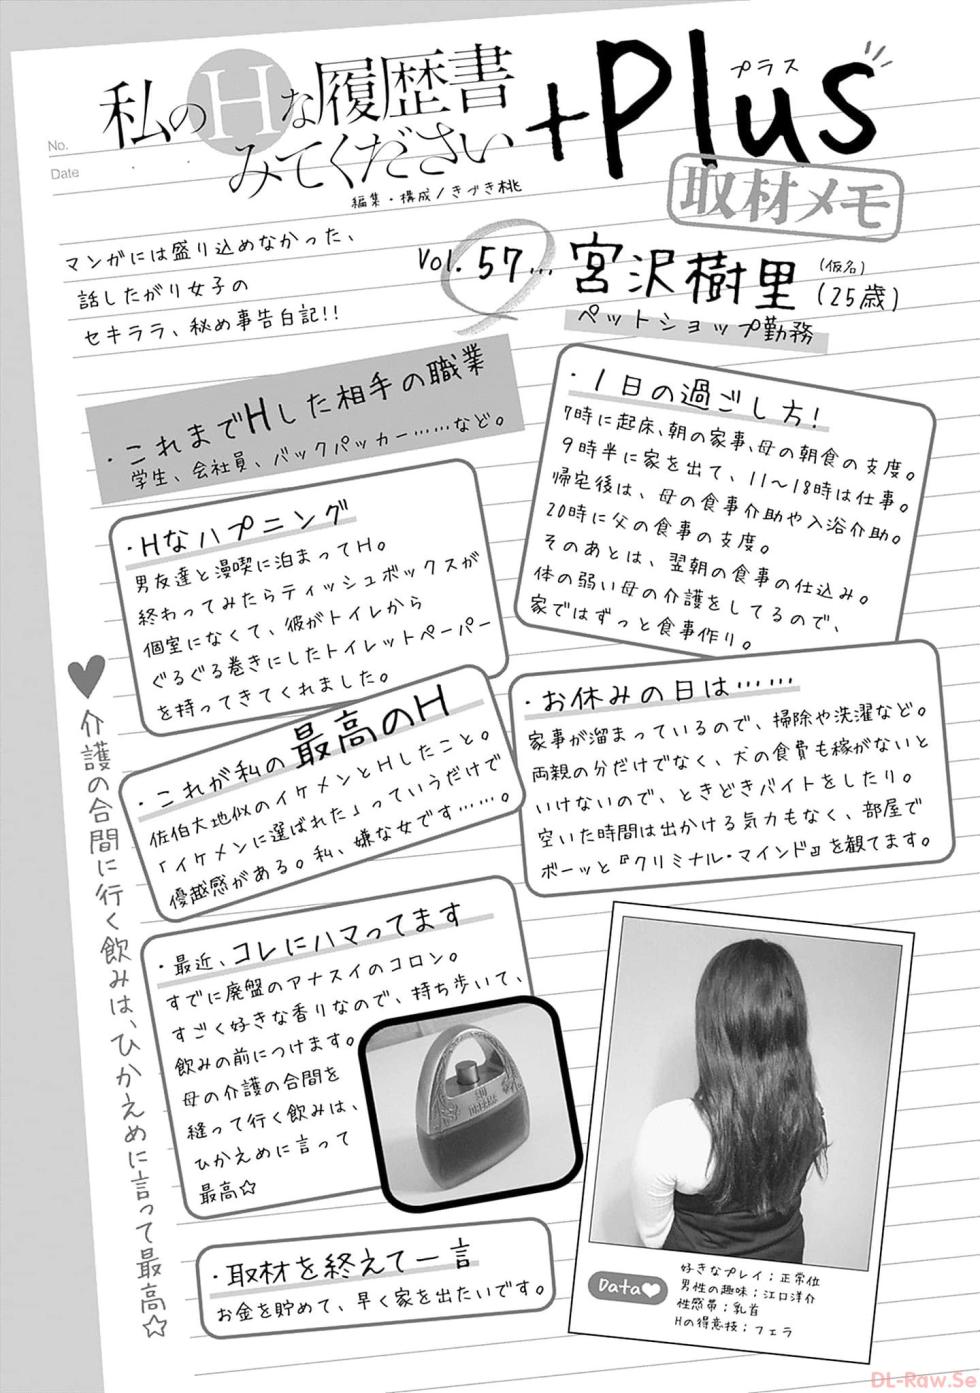 No.
Date
私のHな履歴書
みてください
+Plus
プラス
編集・構成/きづき桃
取材メモ
マンガには盛り込めなかった、
話したがり女子の
セキララ、秘め事告白記!!
Vol. 57… 宮沢樹里(仮名)(25歳)
ペットショップ勤務
・これまでHした相手の職業
学生、会社員、バックパッカー……など。
・1日の過ごし方!
7時に起床、朝の家事、母の朝食の支度。
9時半に家を出て、11〜18時は仕事。
帰宅後は、母の食事介助や入浴介助。
20時に父の食事の支度。
そのあとは、翌朝の食事の仕込み。
体の弱い母の介護をしてるので、
家ではずっと食事作り。
・Hなハプニング
男友達と漫喫に泊まってH。
終わってみたらティッシュボックスが
個室になくて、彼がトイレから
ぐるぐる巻きにしたトイレットペーパー
を持ってきてくれました。
・お休みの日は……
家事が溜まっているので、掃除や洗濯など。
両親の分だけでなく、犬の食費も稼がないと
いけないので、ときどきバイトをしたり。
空いた時間は出かける気力もなく、部屋で
ボーッと『クリミナル・マインド』を観てます。
・これが私の最高のH
佐伯大地似のイケメンとHしたこと。
「イケメンに選ばれた」っていうだけで
優越感がある。私、嫌な女です……。
・最近、コレにハマってます
すでに廃盤のアナスイのコロン。
すごく好きな香りなので、持ち歩いて、
飲みの前につけます。
母の介護の合間を
縫って行く飲みは、
ひかえめに言って
最高☆
・取材を終えて一言
お金を貯めて、早く家を出たいです。
♥介護の合間に行く飲みは、ひかえめに言って最高☆
Data♥
好きなプレイ；正常位
男性の趣味；江口洋介
性感帯；乳首
Hの得意技；フェラ
DL-Raw.Se